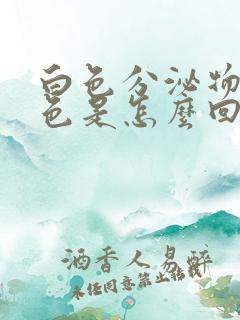 白色分泌物
色是怎麼回
酒香人易醉
未经同意禁止转载